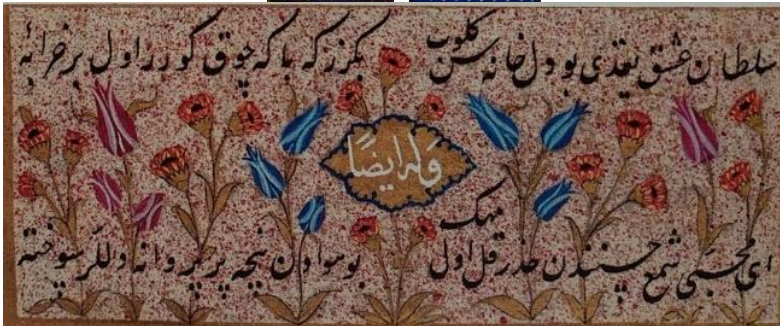 سلطان عشق یقدی بو دل خانه سن کلوب بکزر که باکه چوق کورر اول بر خرابه
وله ایضًا
ای محبی شمع حسنندن حذر قل اول مهک بو سوادن نیجه پر پروانه دللر سوخته